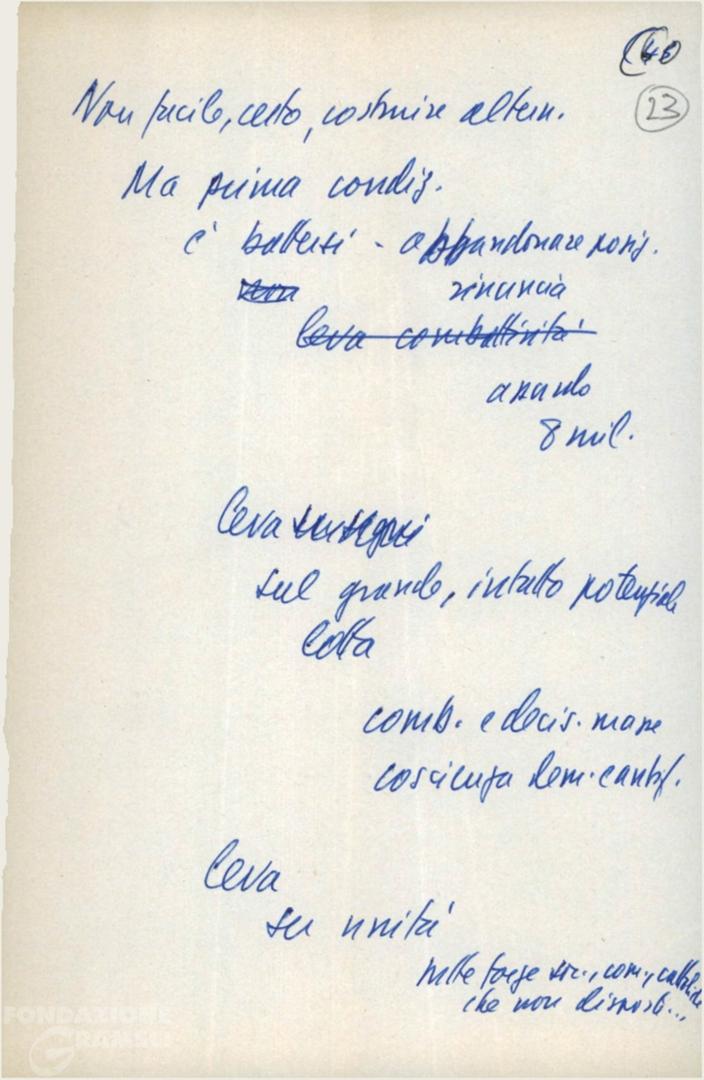 23
Non facile, certo, costruire altern.
Ma prima condiz.
è battersi - abbandonare posiz.
non rinuncia
Leva combattività
8 mil.
Leva
sul grande, intatto potenziale
lotta
comb. e decis. masse
coscienza dem. e antif.
Leva
su unità
tutte forze soc., com., cattoliche
che non disposti...
FONDAZIONE
GRAMSCI